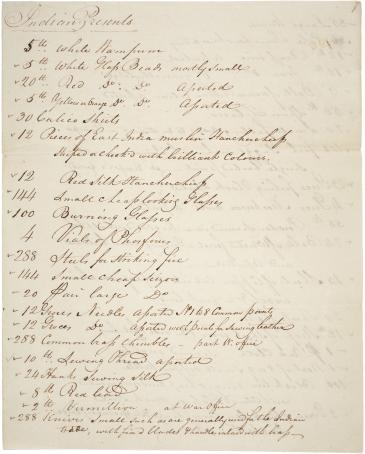 Indian Presents
5 lb White Wampum
5 lb White Glass Beads mostly small
20 lb Red Do. Do. Assorted
5 lb Yellow or Orange Do Do Assorted
30 Calico Shirts
12 Pieces of East India muslin Hanckerchiefs
striped or check'd with brilliant Colours.
12 Red Silk Hanckerchiefs
144 Small cheap looking Glasses
100 Burning Glasses
4 Vials of Phosforus
288 Steels for striking fire
144 Small cheap Scizors
20 Pair large Do
12 Groces Needles Assorted No. 1 to 8 Common points
12 Groces Do. Assorted with points for sewing leather
288 Common brass thimbles - part W. office
10 lb Sewing Thread assorted
24 Hanks Sewing Silk
8 lb Red lead
2 lb Vermillion at War Office
288 Knives Small such as are generally used for the Indian
trade, with fix'd blades & handles inlaid with brass